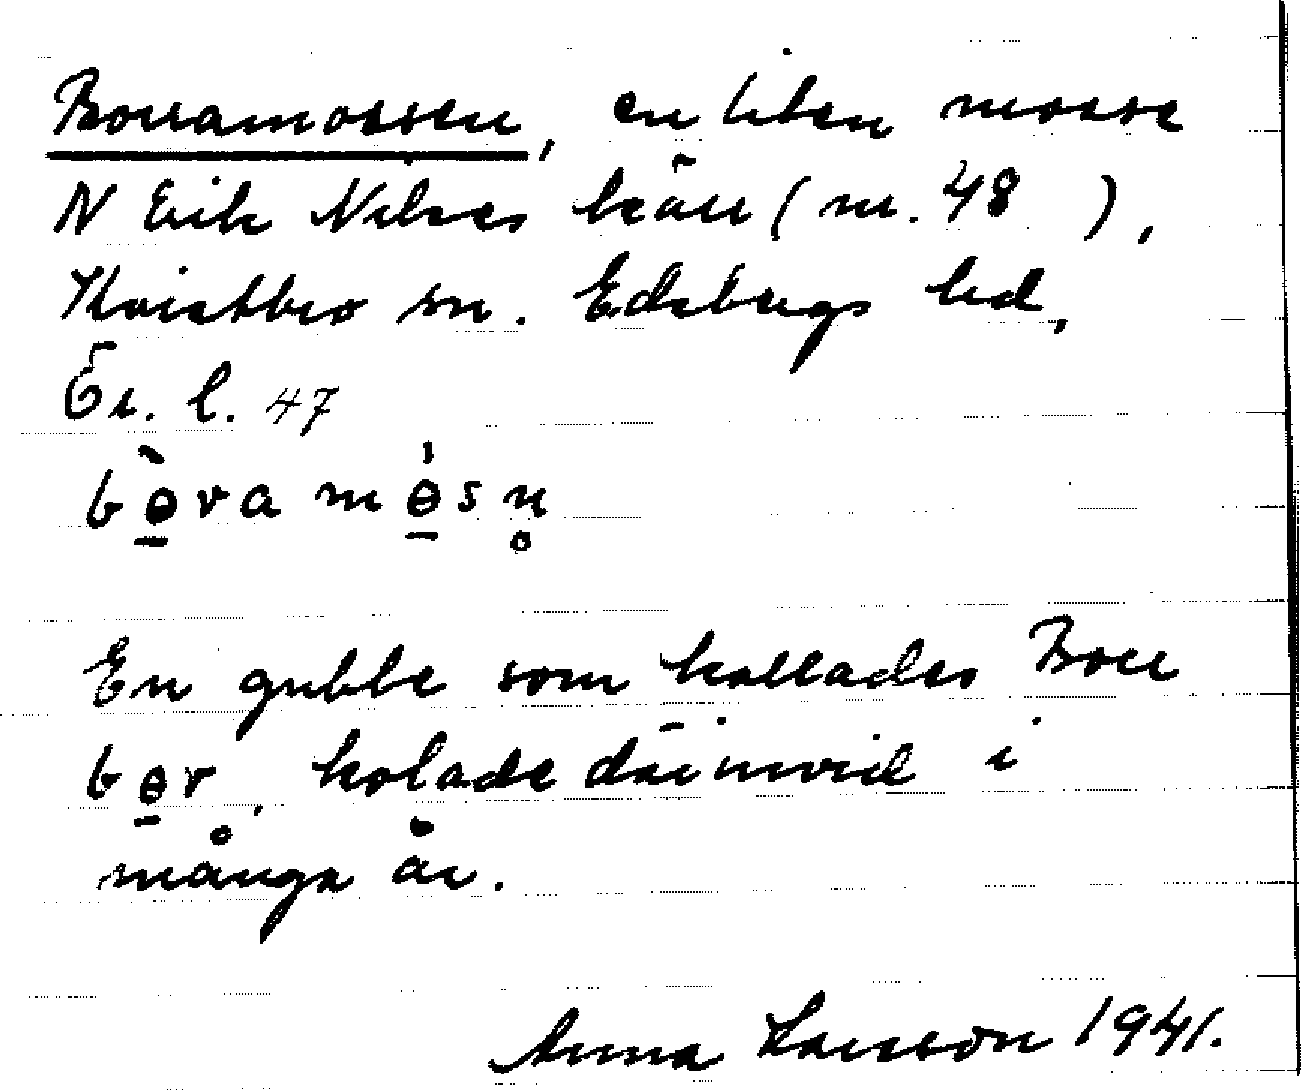 Borramossen, en liten mosse
N Erik Nilses kärr (nr. 48 ),
Kvistbro sn. Edsbergs hd,
Ör. l. 47
bɵ̠̀ramɵ̠́sn̥
En gubbe som kallades Borr
bɵ̠r, kolade därinvid i
många år.
Anna Larsson 1941.